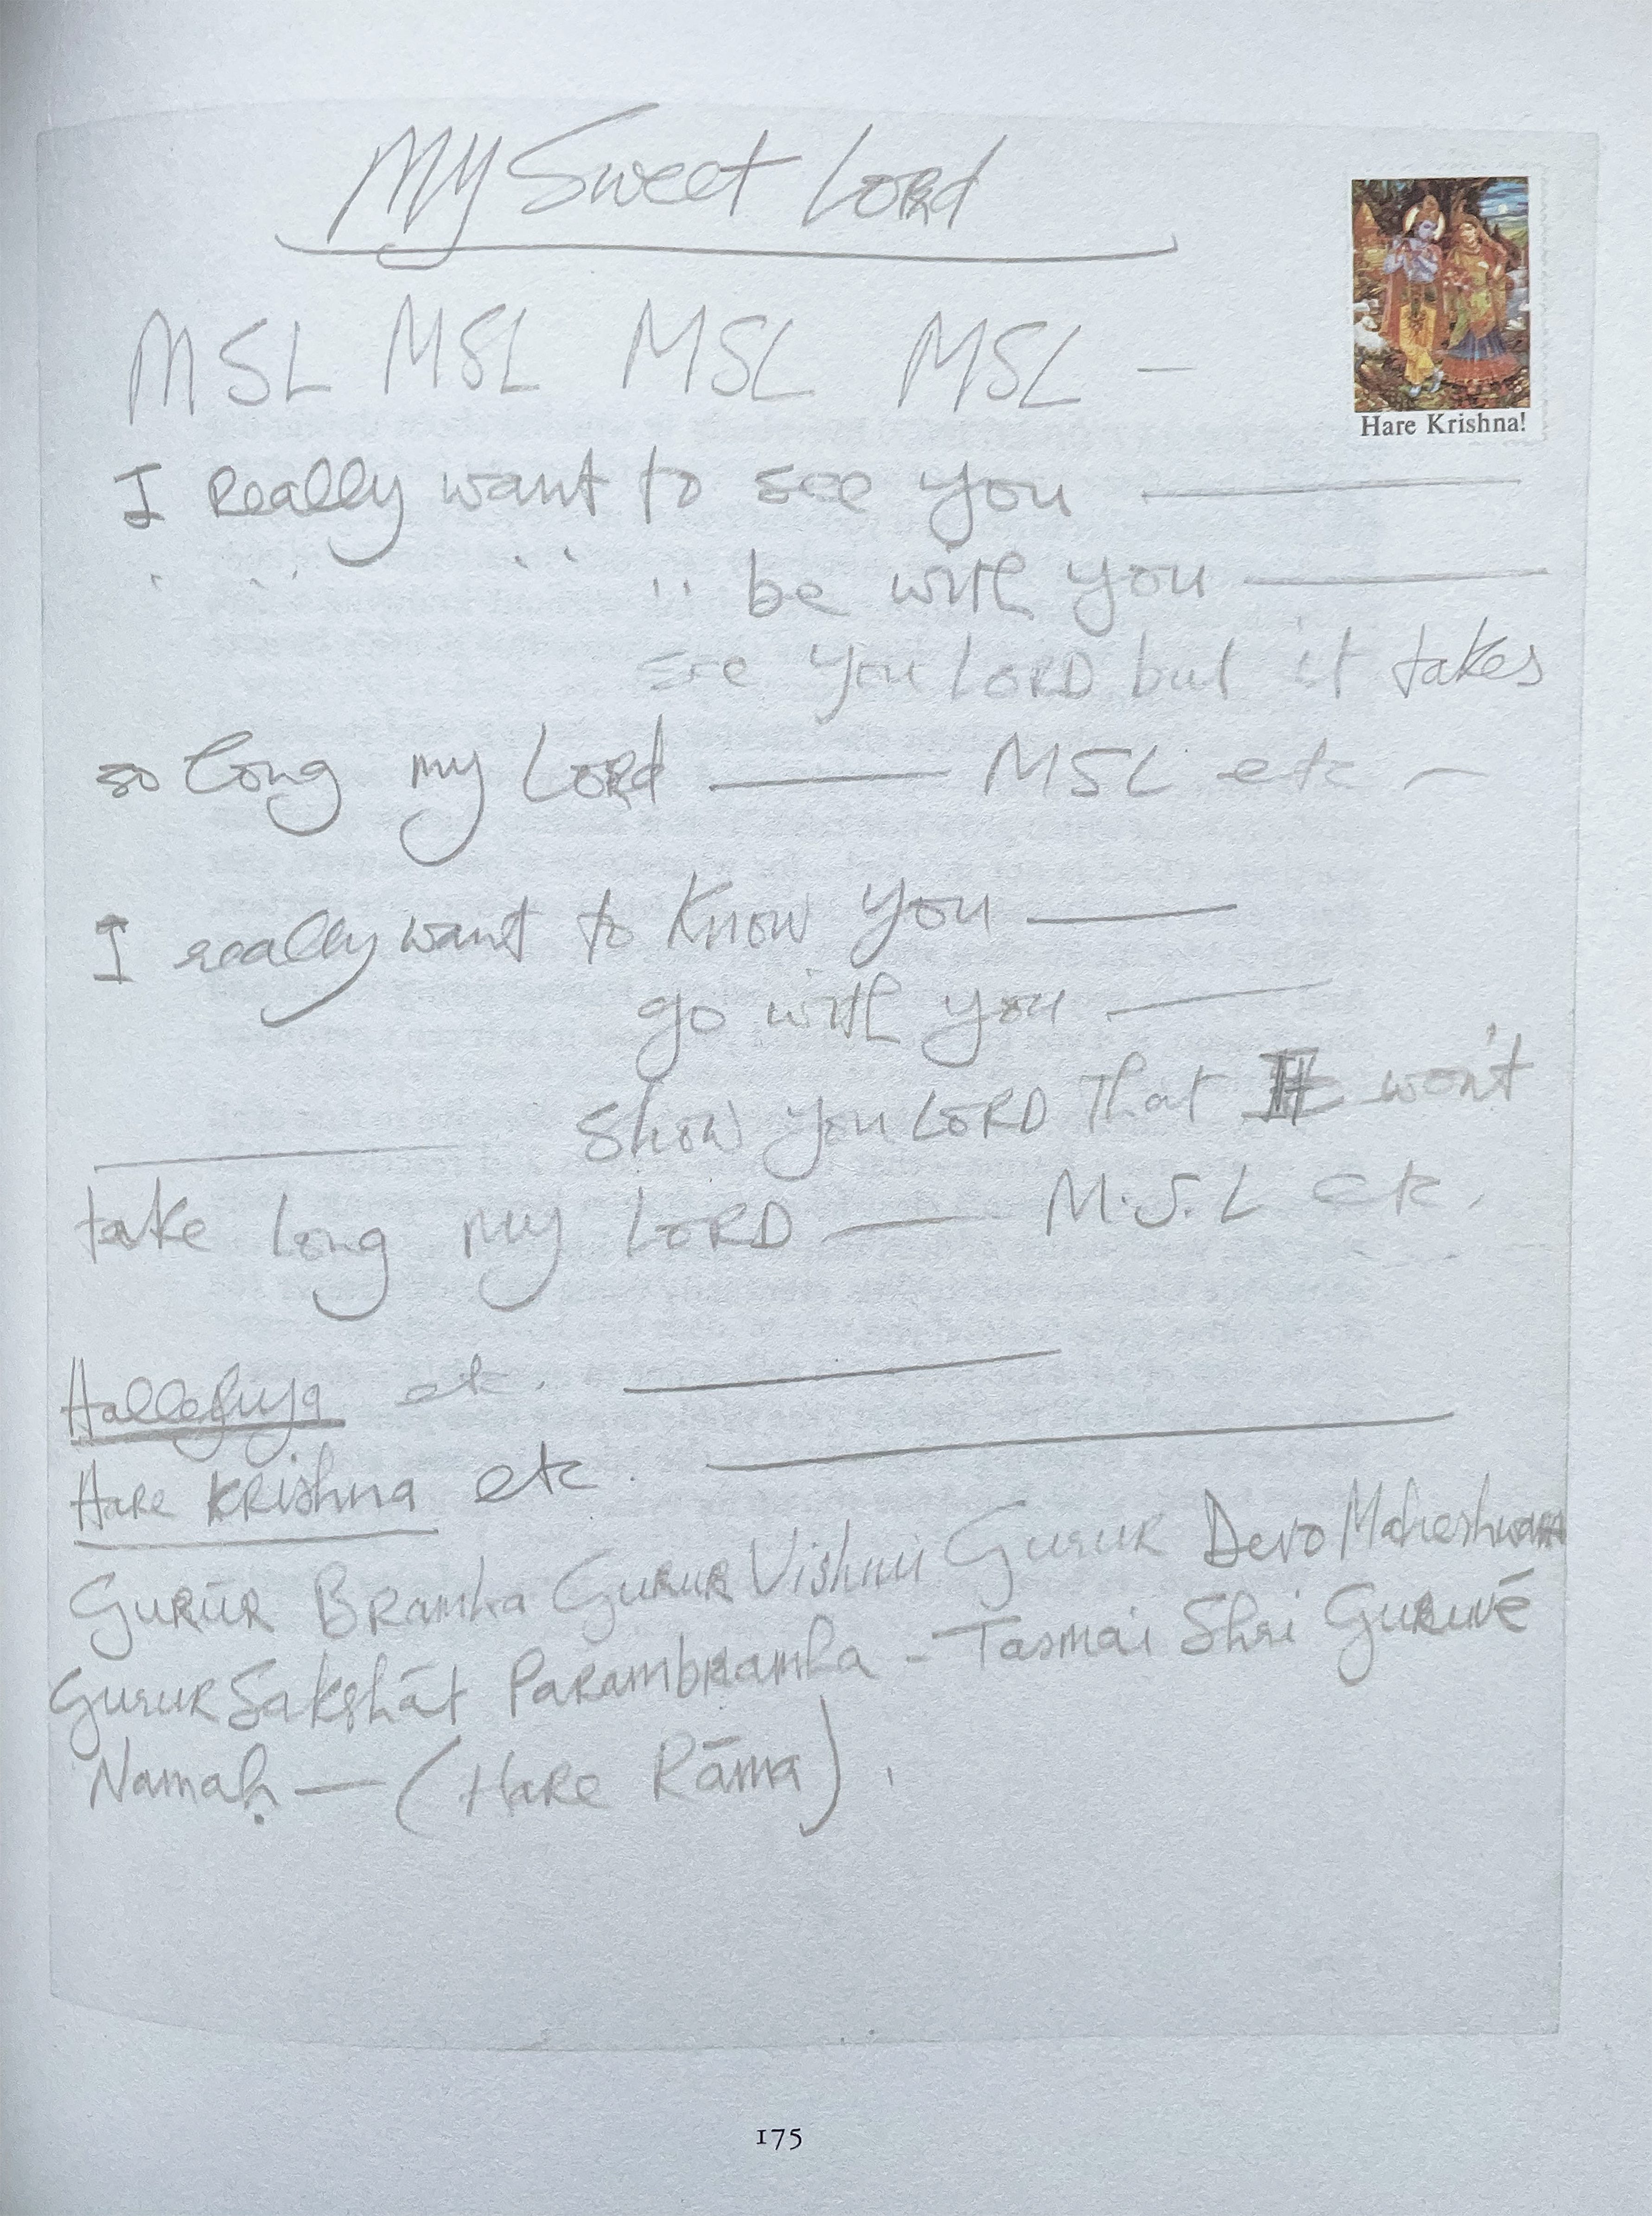 My Sweet Lord
MSL MSL MSL MSL —
Hare Krishna!
I Really want to see you ———
" " " " be with you ———
see you LORD but it takes
so long my LORd ——— MSL etc —
I really want to Know you ———
go with you ———
——— Show you LORD That It won't
take long my LORD —— M.S.L etc.
Halleluja etc. ———
Hare Krishna etc. ———
Gurūr Bramha Gurur Vishnu Gurur Devo Maheshwara
Gurur Sakshāt Parambramha - Tasmai Shri Guruvē
Namaḥ — (Hare Rāma).
175